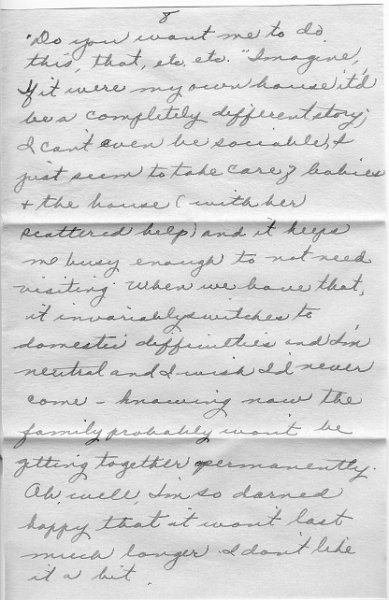 8
"Do you want me to do
this, that, etc. etc." Imagine,
If it were my own house it'd
be a completely different story;
I can't even be sociable, I
just seem to take care of babies
+ the house (with her
scattered help) and it keeps
me busy enough to not need
visiting. When we have that,
it invariably switches to
domestic difficulties and I'm
neutral and I wish I'd never
come - knowing now the
family probably won't be
getting together permanently.
Oh well, I'm so darned
happy that it won't last
much longer. I don't like
it a bit.